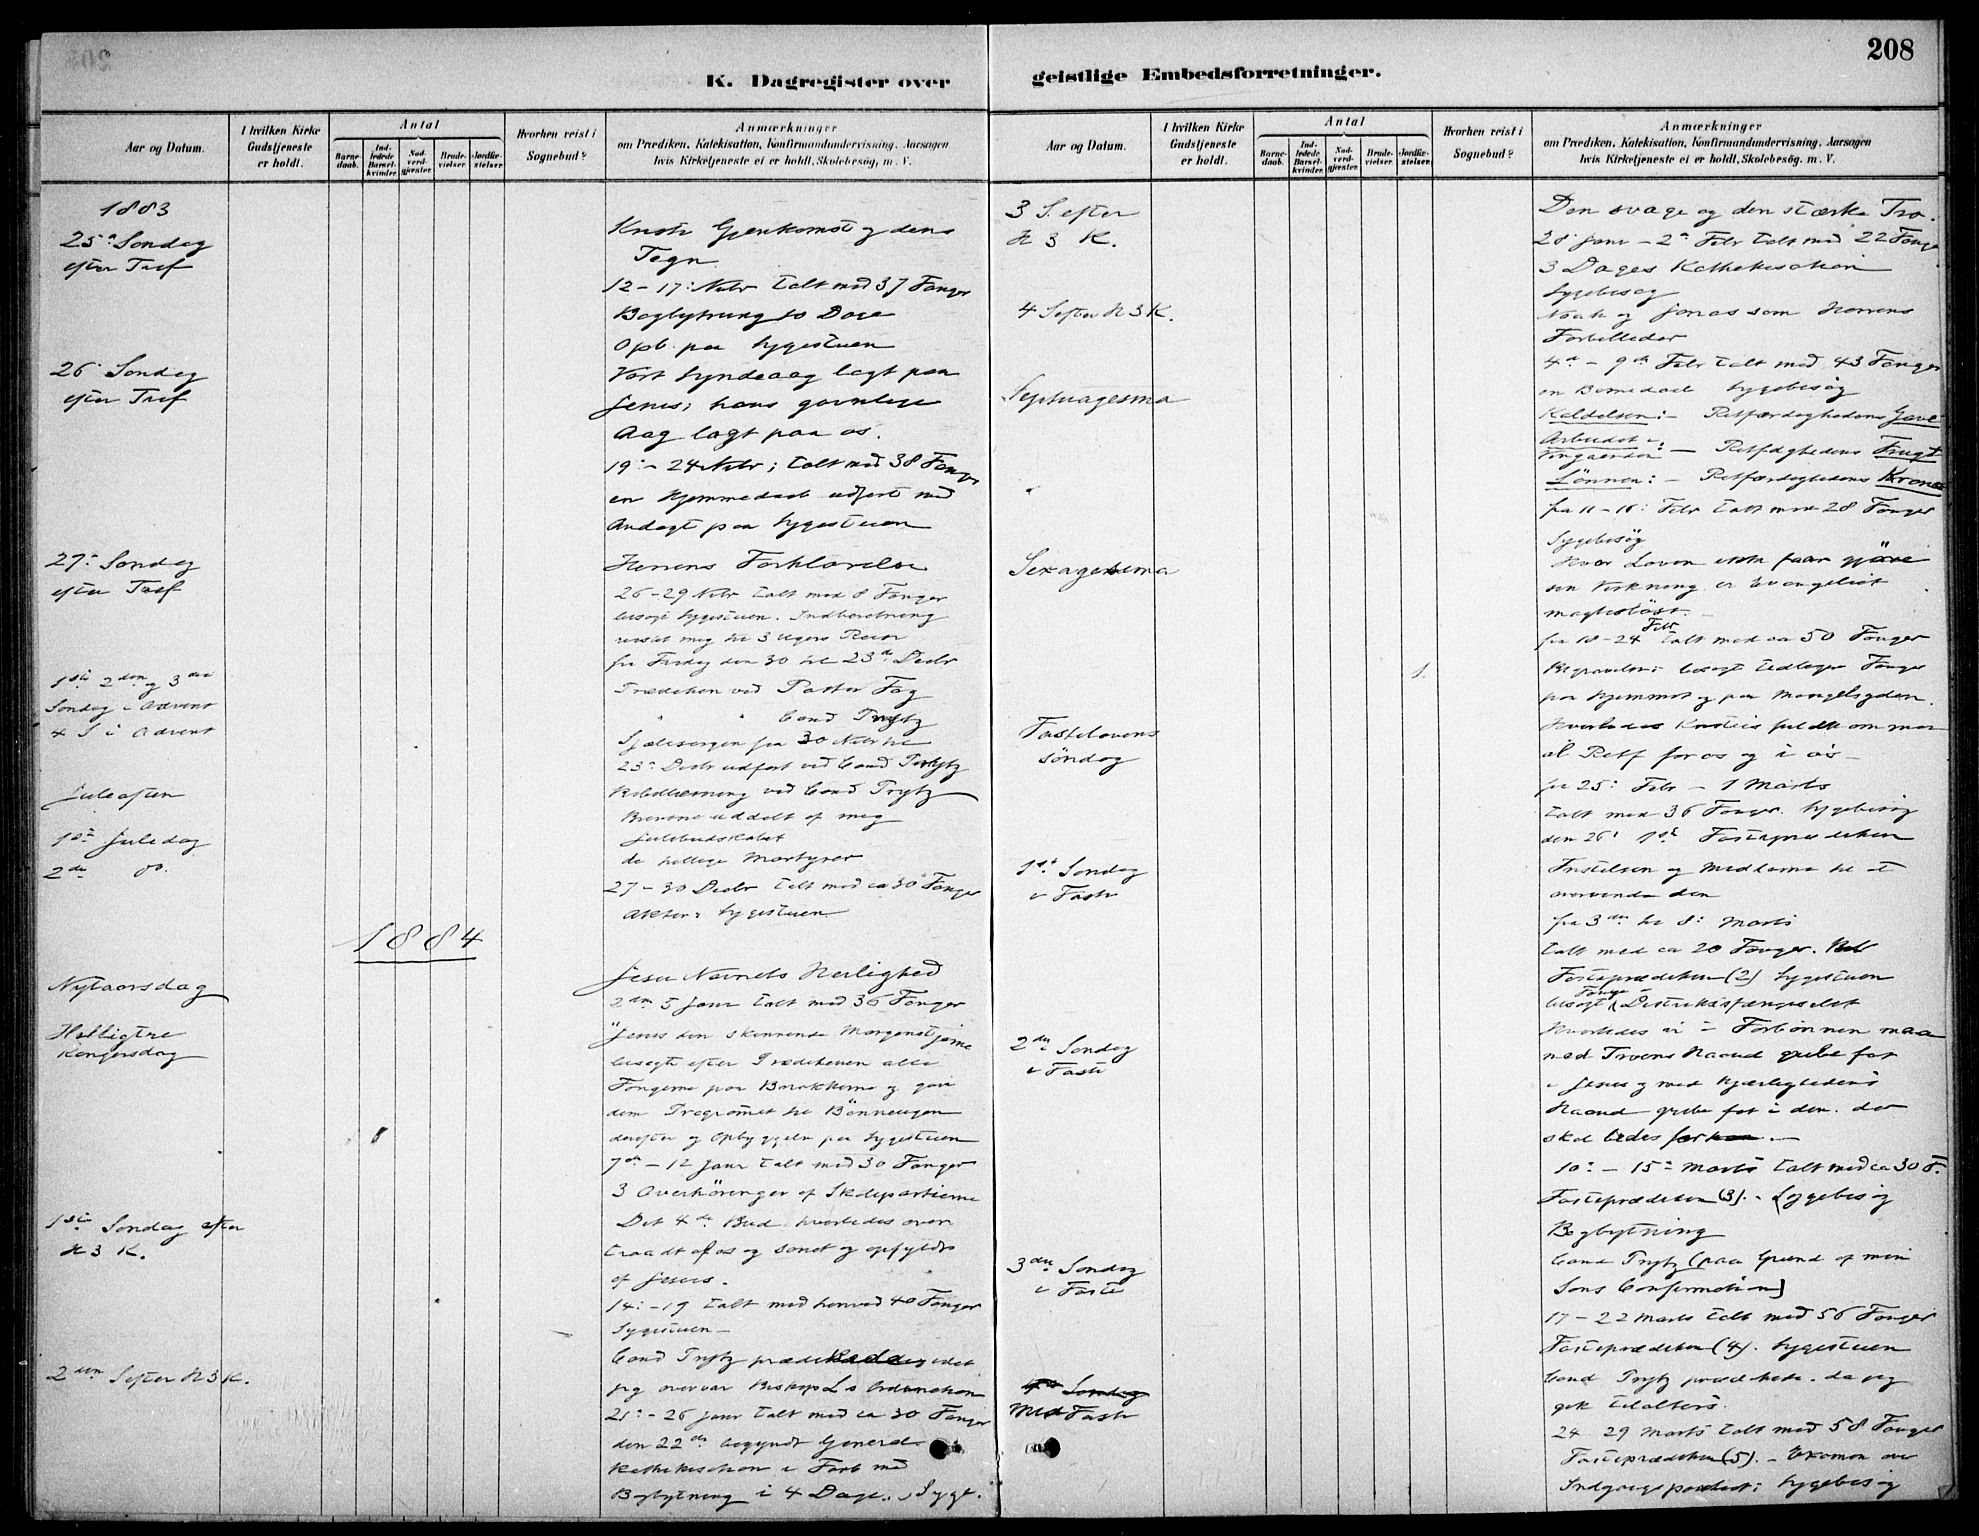 208
K. Dagregister over
geistlige Embedsforretninger.
Aar og Datum.
I hvilken Kirke
Gudstjeneste
er holdt.
Antal
Barne-
daab.
Ind-
ledede
Barsel-
kvinder.
Nad-
verd-
gjæster.
Brude-
vielser.
Jordfæ-
stelser.
Hvorhen reist i
Sognebud?
Anmærkninger
om Prædiken, Katekisation, Konfirmandundervisning. Aarsagen
hvis Kirketjeneste ei er holdt, Skolebesøg, m. V.
1883
25 Søndag
efter Tref
Gjenkomst og dens
Tegn
12 – 17: Nvbr talt med 37 Fanger
Dage
Opb. paa Sygestuen
26 Søndag
efter Tref
Vort Syndeaag lagt paa
Jesus; hans gavnlige
Aag lagt paa os.
19 – 24 Nvbr; talt med 38 Fanger
en Hjemmedaab udført med
Andagt paa Sygestuen
27 Søndag
efter Tref
Herrens Forklarelse
26 – 29 Nvbr talt med 8 Fanger
besøgt Sygestuen. Indberetning
3 Ugers
fra Fredag den 30 til 23de Decbr
1ste 2den og 3die
Søndag i Advent
Prædiken ved Pastor Fog
4 S i Advent
" " Cand Trytz
Sjælesorgen fra 30 Nvbr til
23 Decbr udført ved Cand Trytz
Juleaften
ved Cand Trytz
uddelt af mig
1ste Juledag
Julebudskabet
2de do.
de hellige Martyrer
27 – 30 Decbr talt med ca 30 Fanger
Sygestuen
1884
Nytaarsdag
Jesu Navnets Herlighed
5 Janr talt med 36 Fanger
Helligtre
Kongersdag
Jesus den skinnende Morgenstjerne
besøgt efter Prædikenen alle
Fangerne paa Barakkerne og gav
dem Programmet til Bønneugen
derefter og Opbyggelse paa Sygestuen
7de – 12 Janr talt med 30 Fanger
3 Overhøringer af Skolepartierne
1ste Søndag efter
H 3 K.
Det 4de Bud hvorledes over
traadt af os og sonet og opfyldt
af Jesus.
14 – 19 talt med henved 40 Fanger
Sygestuen –
2den S efter H 3 K.
Cand Trytz idet
jeg overvar Biskop Ls Ordination
21 – 26 Janr talt med ca 30 Fanger
den 22de begyndt General
Kathekisation i Forb med
Bogbytning i 4 Dage. Sygt.
Aar og Datum.
I hvilken Kirke
Gudstjeneste
er holdt.
Antal
Barne-
daab.
Ind-
ledede
Barsel-
kvinder.
Nad-
verd-
gjæster.
Brude-
vielser.
Jordfæ-
stelser.
Hvorhen reist i
Sognebud?
Anmærkninger
om Prædiken, Katekisation, Konfirmandundervisning. Aarsagen
hvis Kirketjeneste ei er holdt, Skolebesøg. m. V.
3 S. efter
H 3 K.
Den svage og den stærke Tro.
28 Janr – 2 Febr talt med 22 Fanger
3 Dages Kathekisation
Sygebesøg
4 S efter H 3 K.
Noah og Jonas som Herrens
Forbilleder
4 – 9de Febr talt med 43 Fanger
en Barnedaab Sygebesøg
Septuagesima
Kaldelsen: – Retfærdighedens Gave
Arbeidet i
Vingaarden: – Retfærdighedens Frugt
Lønnen: – Retfærdighedens Krone
fra 11 – 16: Febr talt med 28 Fanger
Sygebesøg
Sexagesima
Hvor Loven ikke faar gjøre
sin Virkning er Evangeliet
magtesløst. –
fra 18 – 24 Febr talt med ca 50 Fanger
1.
Begravelse; besøgt Fanger
paa Hjemmet og paa Mangelsgaden.
Fastelavens
Søndag
Hvorledes Kristus fuldkommer
al Retf for os og i os –
fra 25 Febr – 1 Marts
talt med 36 Fanger. Sygebesøg
den 26 1ste Fasteprædiken
1ste Søndag
i Faste
Fristelsen og Midlerne til at
overvinde den
fra 3die til 8: Marts
talt med ca 20 Fanger.
Fasteprædiken (2) Sygestuen
besøgt Fange i Distriktsfængselet
2den Søndag
i Faste
Hvorledes vi i Forbønnen maa
med Troens Haand gribe fat
i Jesus og med Kjærlighedens
Haand gribe fat i den, der
skal ledes
10 – 15 Marts talt med ca 30 F.
Fasteprædiken (3). – Sygebesøg
Bogbytning
3die Søndag
i Faste
Cand Trytz (paa Grund af min
Søns Confirmation)
17 – 22 Marts talt med 56 Fanger
Fasteprædiken (4). Sygestuen
Midfaste
Cand Trytz prædikede, da jeg
gik til alters.
24 29 Marts talt med 58 Fanger
Fasteprædiken (5). – Examen over
Sygebesøg